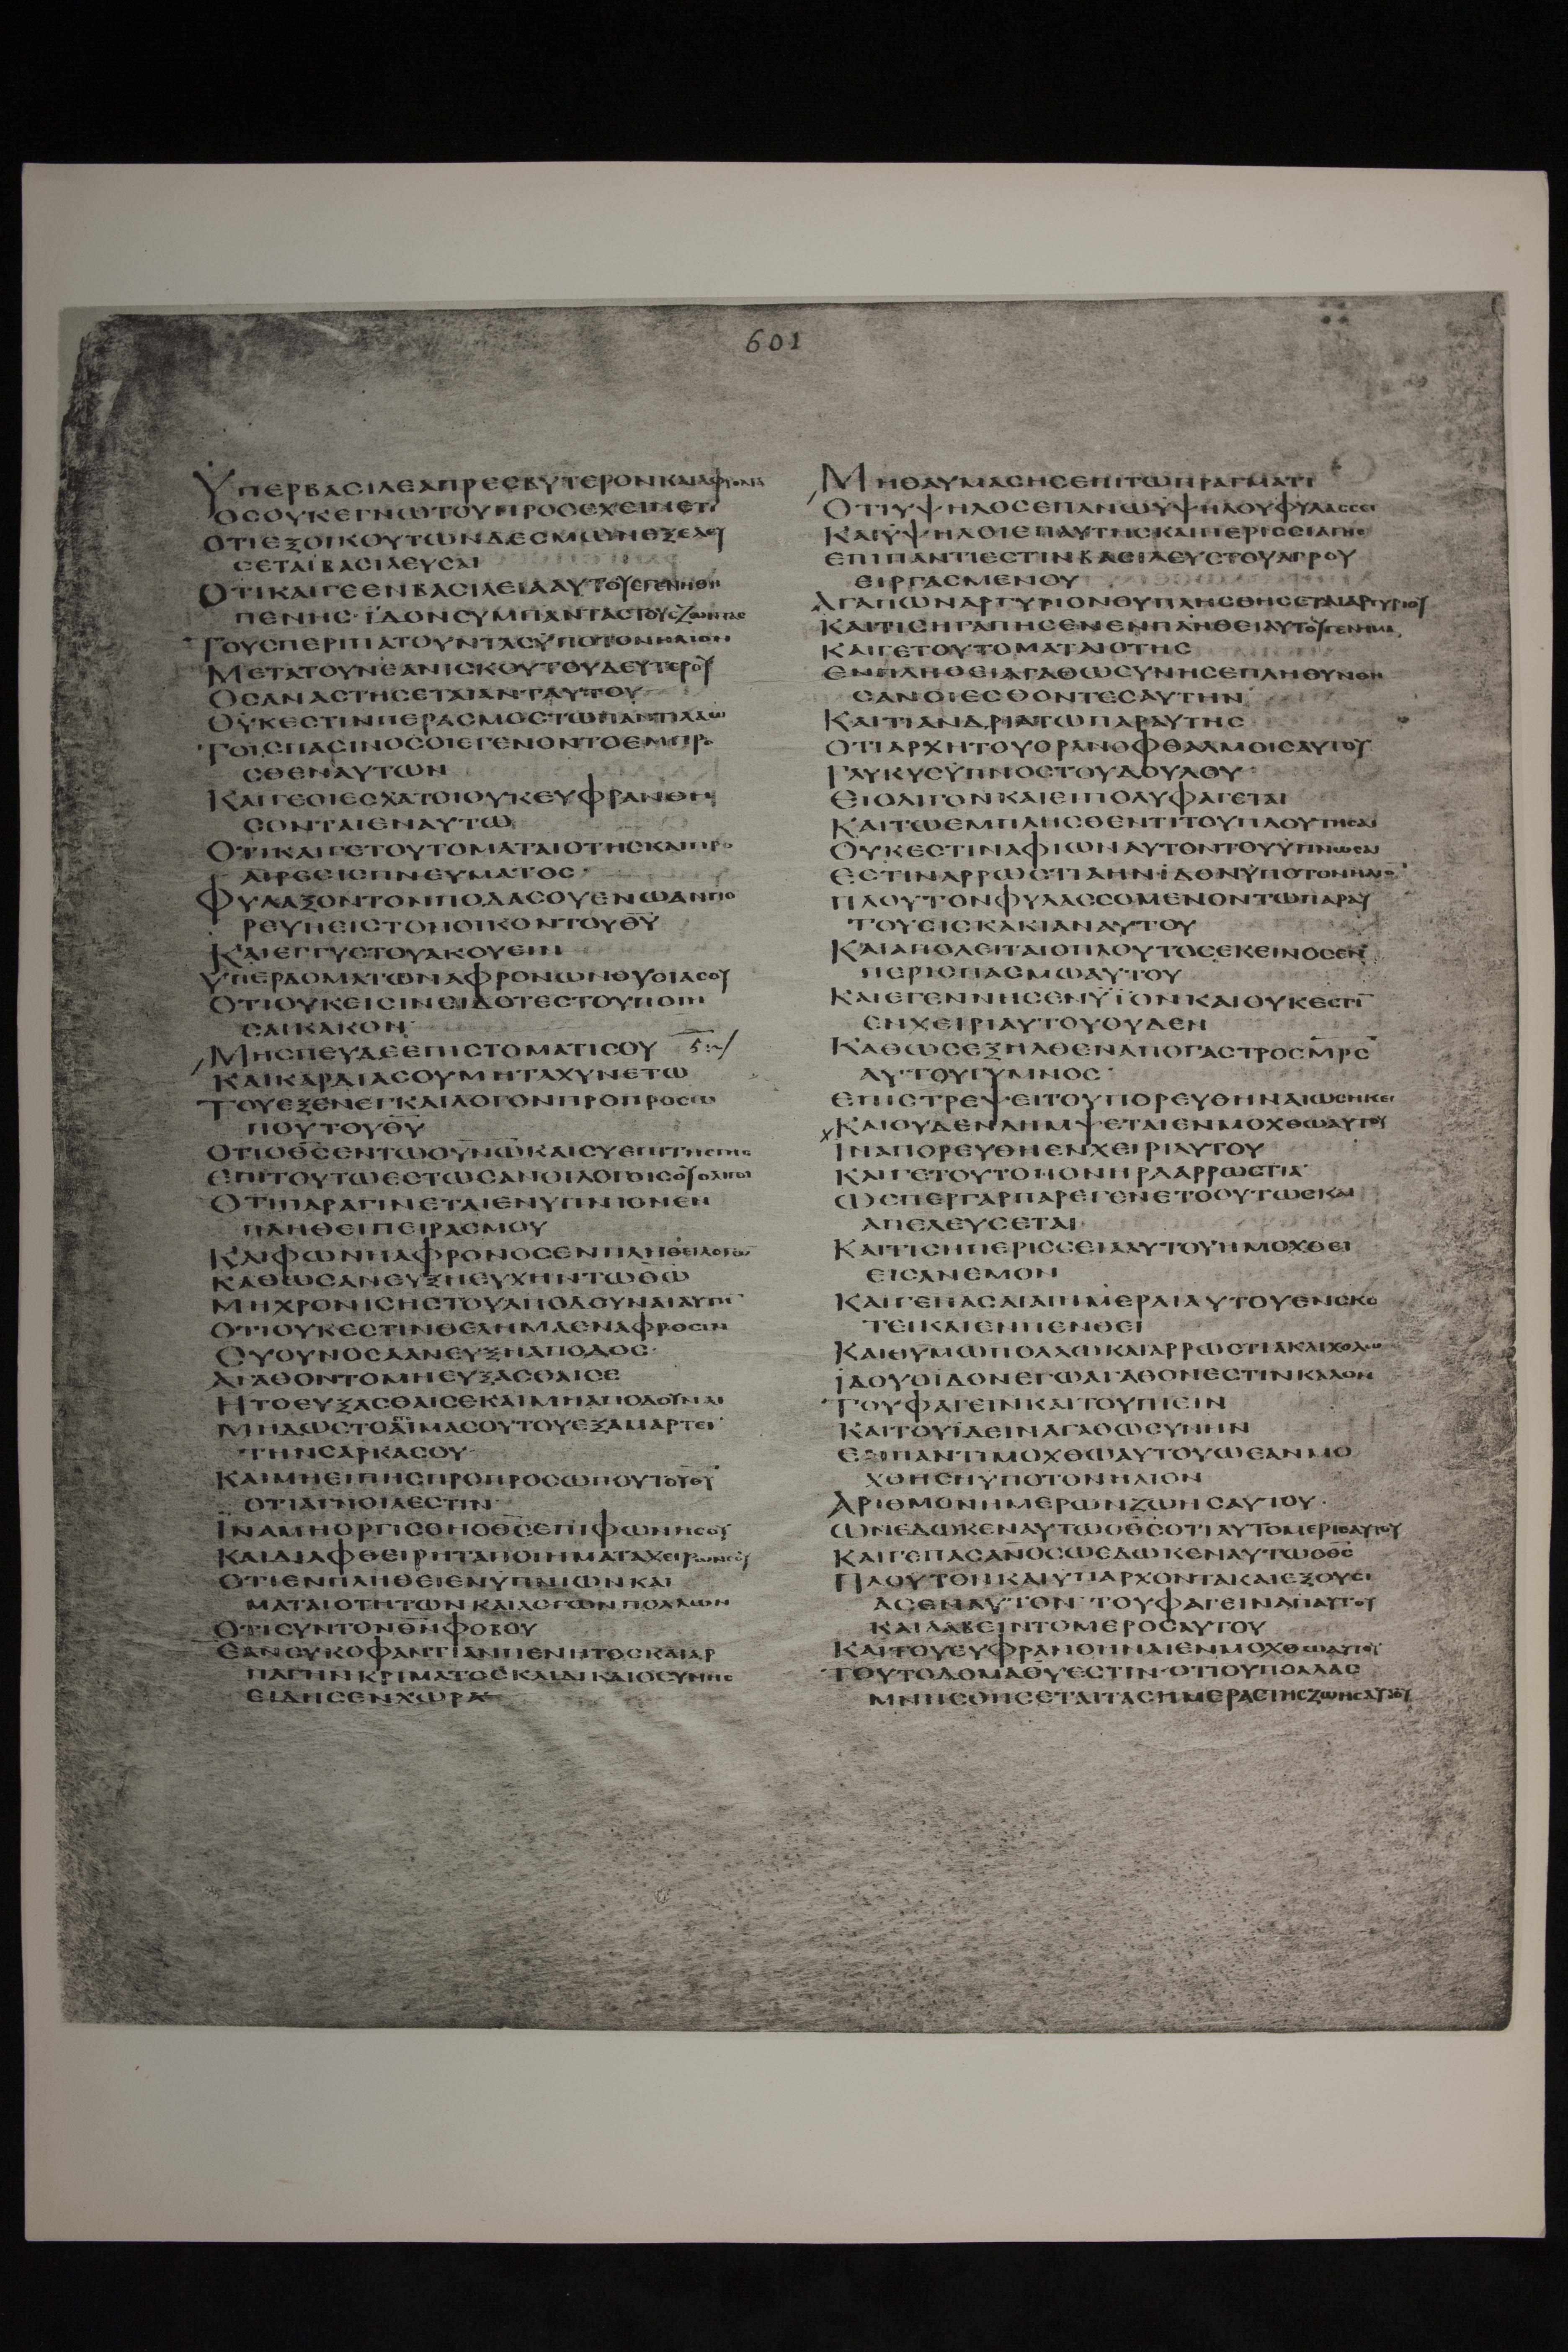 601
ΫΠΕΡΒΑСΙΛΕΑΠΡΕСΒΥΤΕΡΟΝΚΑΙΑΦΡΟΝΑ
ΟСΟΥΚΕΓΝΩΤΟΥΠΡΟСΕΧΕΙΝΕΤΙ
ΟΤΙΕΞΟΙΚΟΥΤΩΝΔΕСΜΩΝΕΞΕΛΕΥ
СΕΤΑΙΒΑСΙΛΕΥСΑΙ
ΟΤΙΚΑΙΓΕΕΝΒΑСΙΛΕΙΑΑΥΤΟΥΕΓΕΝΗΘΗ
ΠΕΝΗС·ΪΔΟΝСΥΜΠΑΝΤΑСΤΟΥСΖΩΝΤΑС
ΤΟΥСΠΕΡΙΠΑΤΟΥΝΤΑСΫΠΟΤΟΝΗΛΙΟΝ
ΜΕΤΑΤΟΥΝΕΑΝΙСΚΟΥΤΟΥΔΕΥΤΕΡΟΥ
ΟСΑΝΑСΤΗСΕΤΑΙΑΝΤΑΥΤΟΥ
ΟΥΚΕСΤΙΝΠΕΡΑСΜΟСΤΩΠΑΝΤΙΛΑΩ
ΤΟΙСΠΑСΙΝΟСΟΙΕΓΕΝΟΝΤΟΕΜΠΡΟ
СΘΕΝΑΥΤΩΝ
ΚΑΙΓΕΟΙΕСΧΑΤΟΙΟΥΚΕΥΦΡΑΝΘΗ
СΟΝΤΑΙΕΝΑΥΤΩ
ΟΤΙΚΑΙΓΕΤΟΥΤΟΜΑΤΑΙΟΤΗСΚΑΙΠΡΟ
ΑΙΡΕСΙСΠΝΕΥΜΑΤΟС·
ΦΥΛΑΞΟΝΤΟΝΠΟΔΑСΟΥΕΝΩΑΝΠΟ
ΡΕΥΗΕΙСΤΟΝΟΙΚΟΝΤΟΥΘΥ
ΚΑΙΕΓΓΥСΤΟΥΑΚΟΥΕΙΝ
ΥΠΕΡΔΟΜΑΤΩΝΑΦΡΟΝΩΝΘΥСΙΑСΟΥ
ΟΤΙΟΥΚΕΙСΙΝΕΙΔΟΤΕСΤΟΥΠΟΙΗ
СΑΙΚΑΚΟΝ
ΜΗСΠΕΥΔΕΕΠΙСΤΟΜΑΤΙСΟΥ
ΚΑΙΚΑΡΔΙΑСΟΥΜΗΤΑΧΥΝΕΤΩ
ΤΟΥΕΞΕΝΕΓΚΑΙΛΟΓΟΝΠΡΟΠΡΟСΩ
ΠΟΥΤΟΥΘΥ
ΟΤΙΟΘСΕΝΤΩΟΥΝΩΚΑΙСΥΕΠΙΤΗСΓΗС
ΕΠΙΤΟΥΤΩΕСΤΩСΑΝΟΙΛΟΓΟΙСΟΥΟΛΙΓΟΙ
ΟΤΙΠΑΡΑΓΙΝΕΤΑΙΕΝΥΠΝΙΟΝΕΝ
ΠΛΗΘΕΙΠΕΙΡΑСΜΟΥ
ΚΑΙΦΩΝΗΑΦΡΟΝΟСΕΝΠΛΗΘΕΙΛΟΓΩΝ
ΚΑΘΩСΑΝΕΥΞΗΕΥΧΗΝΤΩΘΩ
ΜΗΧΡΟΝΙСΗСΤΟΥΑΠΟΔΟΥΝΑΙΑΥΤΗΝ
ΟΤΙΟΥΚΕСΤΙΝΘΕΛΗΜΑΕΝΑΦΡΟСΙΝ
СΥΟΥΝΟСΑΑΝΕΥΞΗΑΠΟΔΟС·
ΑΓΑΘΟΝΤΟΜΗΕΥΞΑСΘΑΙСΕ
ΗΤΟΕΥΞΑСΘΑΙСΕΚΑΙΜΗΑΠΟΔΟΥΝΑΙ
ΜΗΔΩСΤΟ
ΤΗΝСΑΡΚΑСΟΥ
ΚΑΙΜΗΕΙΠΗСΠΡΟΠΡΟСΩΠΟΥΤΟΥΘΥ
ΟΤΙΑΓΝΟΙΑΕСΤΙΝ
ΪΝΑΜΗΟΡΓΙСΘΗΟΘСΕΠΙΦΩΝΗСΟΥ
ΚΑΙΔΙΑΦΘΕΙΡΗΤΑΠΟΙΗΜΑΤΑΧΕΙΡΩΝСΟΥ
ΟΤΙΕΝΠΛΗΘΕΙΕΝΥΠΝΙΩΝΚΑΙ
ΜΑΤΑΙΟΤΗΤΩΝΚΑΙΛΟΓΩΝΠΟΛΛΩΝ
ΟΤΙСΥΝΤΟΝΘΝΦΟΒΟΥ
ΕΑΝСΥΚΟΦΑΝΤΙΑΝΠΕΝΗΤΟСΚΑΙΑΡ
ΠΑΓΗΝΚΡΙΜΑΤΟСΚΑΙΔΙΚΑΙΟСΥΝΗС
ΕΙΔΗСΕΝΧΩΡΑ
ΜΗΘΑΥΜΑСΗСΕΠΙΤΩΠΡΑΓΜΑΤΙ
ΟΤΙΥΨΗΛΟСΕΠΑΝΩΫΨΗΛΟΥΦΥΛΑССΕΙ
ΚΑΙΫΨΗΛΟΙΕΠΑΥΤΗСΚΑΙΠΕΡΙССΕΙΑΓΗС
ΕΠΙΠΑΝΤΙΕСΤΙΝΒΑСΙΛΕΥСΤΟΥΑΓΡΟΥ
ΕΙΡΓΑСΜΕΝΟΥ
ΑΓΑΠΩΝΑΡΓΥΡΙΟΝΟΥΠΛΗСΘΗСΕΤΑΙΑΡΓΥΡΙΟΥ
ΚΑΙΤΙСΗΓΑΠΗСΕΝΕΝΠΛΗΘΕΙΑΥΤΟΥΓΕΝΗΜΑ
ΚΑΙΓΕΤΟΥΤΟΜΑΤΑΙΟΤΗС
ΕΝΠΛΗΘΕΙΑΓΑΘΩСΥΝΗСΕΠΛΗΘΥΝΘΗ
СΑΝΟΙΕСΘΟΝΤΕСΑΥΤΗΝ
ΚΑΙΤΙΑΝΔΡΙΑΤΩΠΑΡΑΥΤΗС
ΟΤΙΑΡΧΗΤΟΥΟΡΑΝΟΦΘΑΛΜΟΙСΑΥΤΟΥ
ΓΛΥΚΥСΫΠΝΟСΤΟΥΔΟΥΛΟΥ
ΕΙΟΛΙΓΟΝΚΑΙΕΙΠΟΛΥΦΑΓΕΤΑΙ
ΚΑΙΤΩΕΜΠΛΗСΘΕΝΤΙΤΟΥΠΛΟΥΤΗСΑΙ
ΟΥΚΕСΤΙΝΑΦΙΩΝΑΥΤΟΝΤΟΥΥΠΝΩСΑΙ
ΕСΤΙΝΑΡΡΩСΤΙΑΗΝ·ΪΔΟΝΫΠΟΤΟΝΗΛΙΟ
ΠΛΟΥΤΟΝΦΥΛΑССΟΜΕΝΟΝΤΩΠΑΡΑΥ
ΤΟΥΕΙСΚΑΚΙΑΝΑΥΤΟΥ
ΚΑΙΑΠΟΛΕΙΤΑΙΟΠΛΟΥΤΟСΕΚΕΙΝΟСΕΝ
ΠΕΡΙСΠΑСΜΩΑΥΤΟΥ
ΚΑΙΕΓΕΝΝΗСΕΝΫΪΟΝΚΑΙΟΥΚΕСΤΙ
ΕΝΧΕΙΡΙΑΥΤΟΥΟΥΔΕΝ
ΚΑΘΩСΕΞΗΛΘΕΝΑΠΟΓΑСΤΡΟСΜΡС
ΑΥΤΟΥΓΥΜΝΟС·
ΕΠΙСΤΡΕΨΕΙΤΟΥΠΟΡΕΥΘΗΝΑΙΩСΗΚΕΙ
ΚΑΙΟΥΔΕΝΛΗΜΨΕΤΑΙΕΝΜΟΧΘΩΑΥΤΟΥ
ΪΝΑΠΟΡΕΥΘΗΕΝΧΕΙΡΙΑΥΤΟΥ
ΚΑΙΓΕΤΟΥΤΟΠΟΝΗΡΑΑΡΡΩСΤΙΑ
ΩСΠΕΡΓΑΡΠΑΡΕΓΕΝΕΤΟΟΥΤΩСΚΑΙ
ΑΠΕΛΕΥСΕΤΑΙ
ΚΑΙΤΙСΗΠΕΡΙССΕΙΑΑΥΤΟΥΗΜΟΧΘΕΙ
ΕΙСΑΝΕΜΟΝ
ΚΑΙΓΕΠΑСΑΙΑΙΗΜΕΡΑΙΑΥΤΟΥΕΝСΚΟ
ΤΕΙΚΑΙΕΝΠΕΝΘΕΙ
ΚΑΙΘΥΜΩΠΟΛΛΩΚΑΙΑΡΡΩСΤΙΑΚΑΙΧΟΛΩ
ΪΔΟΥΟΪΔΟΝΕΓΩΑΓΑΘΟΝΕСΤΙΝΚΑΛΟΝ
ΤΟΥΦΑΓΕΙΝΚΑΙΤΟΥΠΙΕΙΝ
ΚΑΙΤΟΥΪΔΕΙΝΑΓΑΘΩСΥΝΗΝ
ΕΝΠΑΝΤΙΜΟΧΘΩΑΥΤΟΥΩΕΑΝΜΟ
ΧΘΗСΗΥΠΟΤΟΝΗΛΙΟΝ
ΑΡΙΘΜΟΝΗΜΕΡΩΝΖΩΗСΑΥΤΟΥ·
ΩΝΕΔΩΚΕΝΑΥΤΩΟΘСΟΤΙΑΥΤΟΜΕΡΙСΑΥΤΟΥ
ΚΑΙΓΕΠΑСΑΝΟСΩΕΔΩΚΕΝΑΥΤΩΟΘС
ΠΛΟΥΤΟΝΚΑΙΥΠΑΡΧΟΝΤΑΚΑΙΕΞΟΥСΙ
ΑСΕΝΑΥΤΟΝ ΤΟΥΦΑΓΕΙΝΑΠΑΥΤΟΥ
ΚΑΙΛΑΒΕΙΝΤΟΜΕΡΟСΑΥΤΟΥ
ΚΑΙΤΟΥΕΥΦΡΑΝΘΗΝΑΙΕΝΜΟΧΘΩΑΥΤΟΥ
ΤΟΥΤΟΔΟΜΑΘΥΕСΤΙΝ·ΟΤΙΟΥΠΟΛΛΑС
ΜΝΗСΘΗСΕΤΑΙΤΑСΗΜΕΡΑСΤΗСΖΩΗСΑΥΤΟΥ